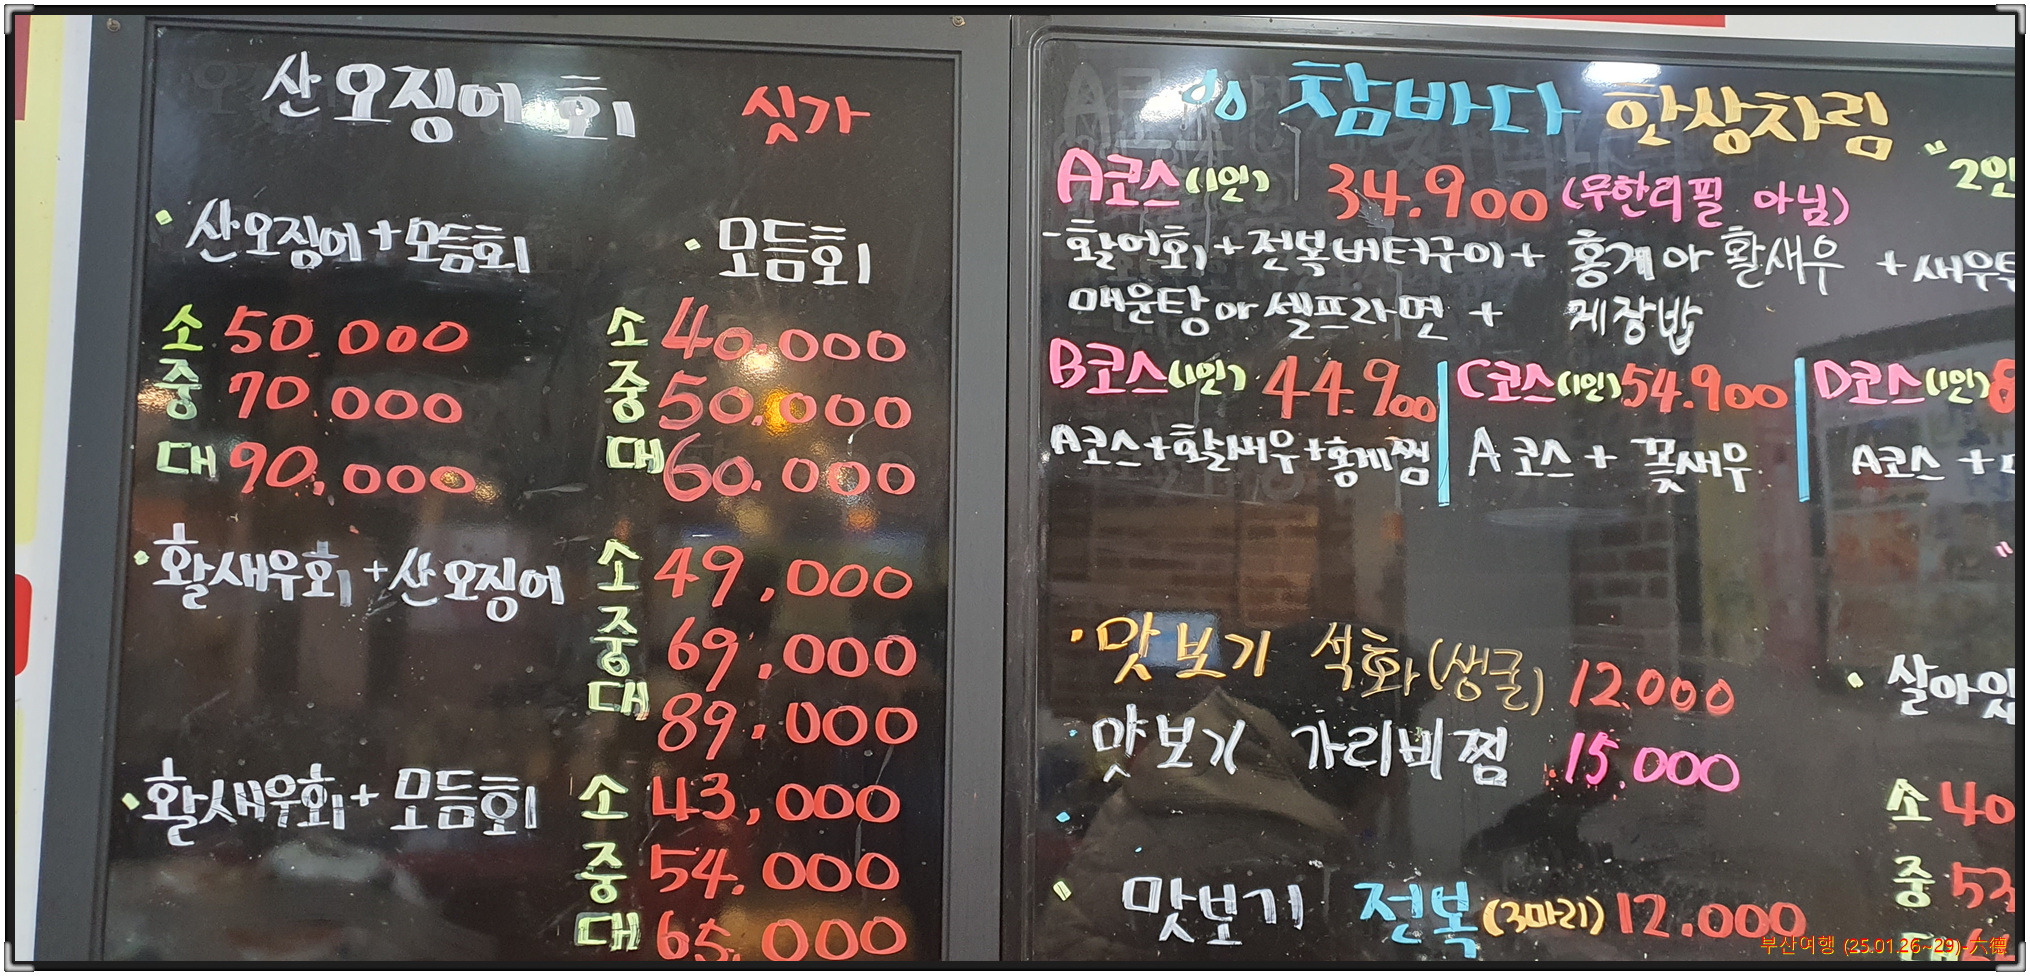 산오징어 회 싯가
산오징어+모듬회
소 50.000
중 70.000
대 90.000
모듬회
소 40.000
중 50.000
대 60.000
활새우회+산오징어
소 49,000
중 69,000
대 89,000
활새우회+모듬회
소 43,000
중 54.000
대 65,000
참바다 한상차림
"2인
A코스(1인) 34.900 (무한리필 아님)
-활어회+전복버터구이+ 홍게and활새우 +새우
매운탕and셀프라면 + 게장밥
B코스(1인) 44.900
A코스+활새우+홍게찜
C코스(1인) 54.900
A코스+꽃새우
D코스(1인)
A코스 +
맛보기 석화(생굴) 12.000
맛보기 가리비찜 15.000
맛보기 전복(3마리) 12.000
살아있
소 40
중 52
부산여행 (25.01.26~29)-六德